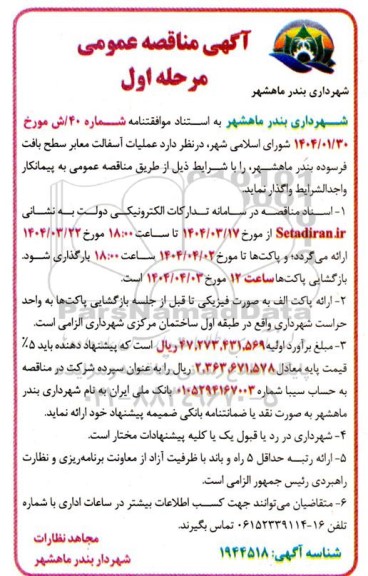 آگهی مناقصه عمومی
مرحله اول
شهرداری بندر ماهشهر
شهرداری بندر ماهشهر به استناد موافقتنامه شماره ۴۰/ش مورخ
۱۴۰۴/۰۱/۳۰ شورای اسلامی شهر، درنظر دارد عملیات آسفالت معابر سطح بافت
فرسوده بندر ماهشهر، را با شرایط ذیل از طریق مناقصه عمومی به پیمانکار
واجدالشرایط واگذار نماید.
۱- اسناد مناقصه در سامانه تدارکات الکترونیکی دولت به نشانی
Setadiran.ir از مورخ ۱۴۰۴/۰۳/۱۷ تا ساعت ۱۸:۰۰ مورخ ۱۴۰۴/۰۳/۲۲
ارائه می‌گردد؛ و پاکت‌ها تا مورخ ۱۴۰۴/۰۴/۰۲ ساعت ۱۸:۰۰ بارگذاری شود.
بازگشایی پاکت‌ها ساعت ۱۲ مورخ ۱۴۰۴/۰۴/۰۳ است.
۲- ارائه پاکت الف به صورت فیزیکی تا قبل از جلسه بازگشایی پاکت‌ها به واحد
حراست شهرداری واقع در طبقه اول ساختمان مرکزی شهرداری الزامی است.
۳- مبلغ برآورد اولیه ۴۷,۲۷۳,۴۳۱,۵۶۹ ریال است که پیشنهاد دهنده باید ۵٪
قیمت پایه معادل ۲,۳۶۳,۶۷۱,۵۷۸ ریال را به عنوان سپرده شرکت در مناقصه
به حساب سیبا شماره ۰۱۰۵۲۹۴۱۶۷۰۰۳ بانک ملی ایران به نام شهرداری بندر
ماهشهر به صورت نقد یا ضمانتنامه بانکی ضمیمه پیشنهاد خود ارائه نماید.
۴- شهرداری در رد یا قبول یک یا کلیه پیشنهادات مختار است.
۵- ارائه رتبه حداقل ۵ راه و باند با ظرفیت آزاد از معاونت برنامه‌ریزی و نظارت
راهبردی رئیس جمهور الزامی است.
۶- متقاضیان می‌توانند جهت کسب اطلاعات بیشتر در ساعات اداری با شماره
تلفن ۱۶-۰۶۱۵۲۳۳۹۱۱۴ تماس بگیرند.
مجاهد نظارات
شهردار بندر ماهشهر
شناسه آگهی: ۱۹۴۴۵۱۸